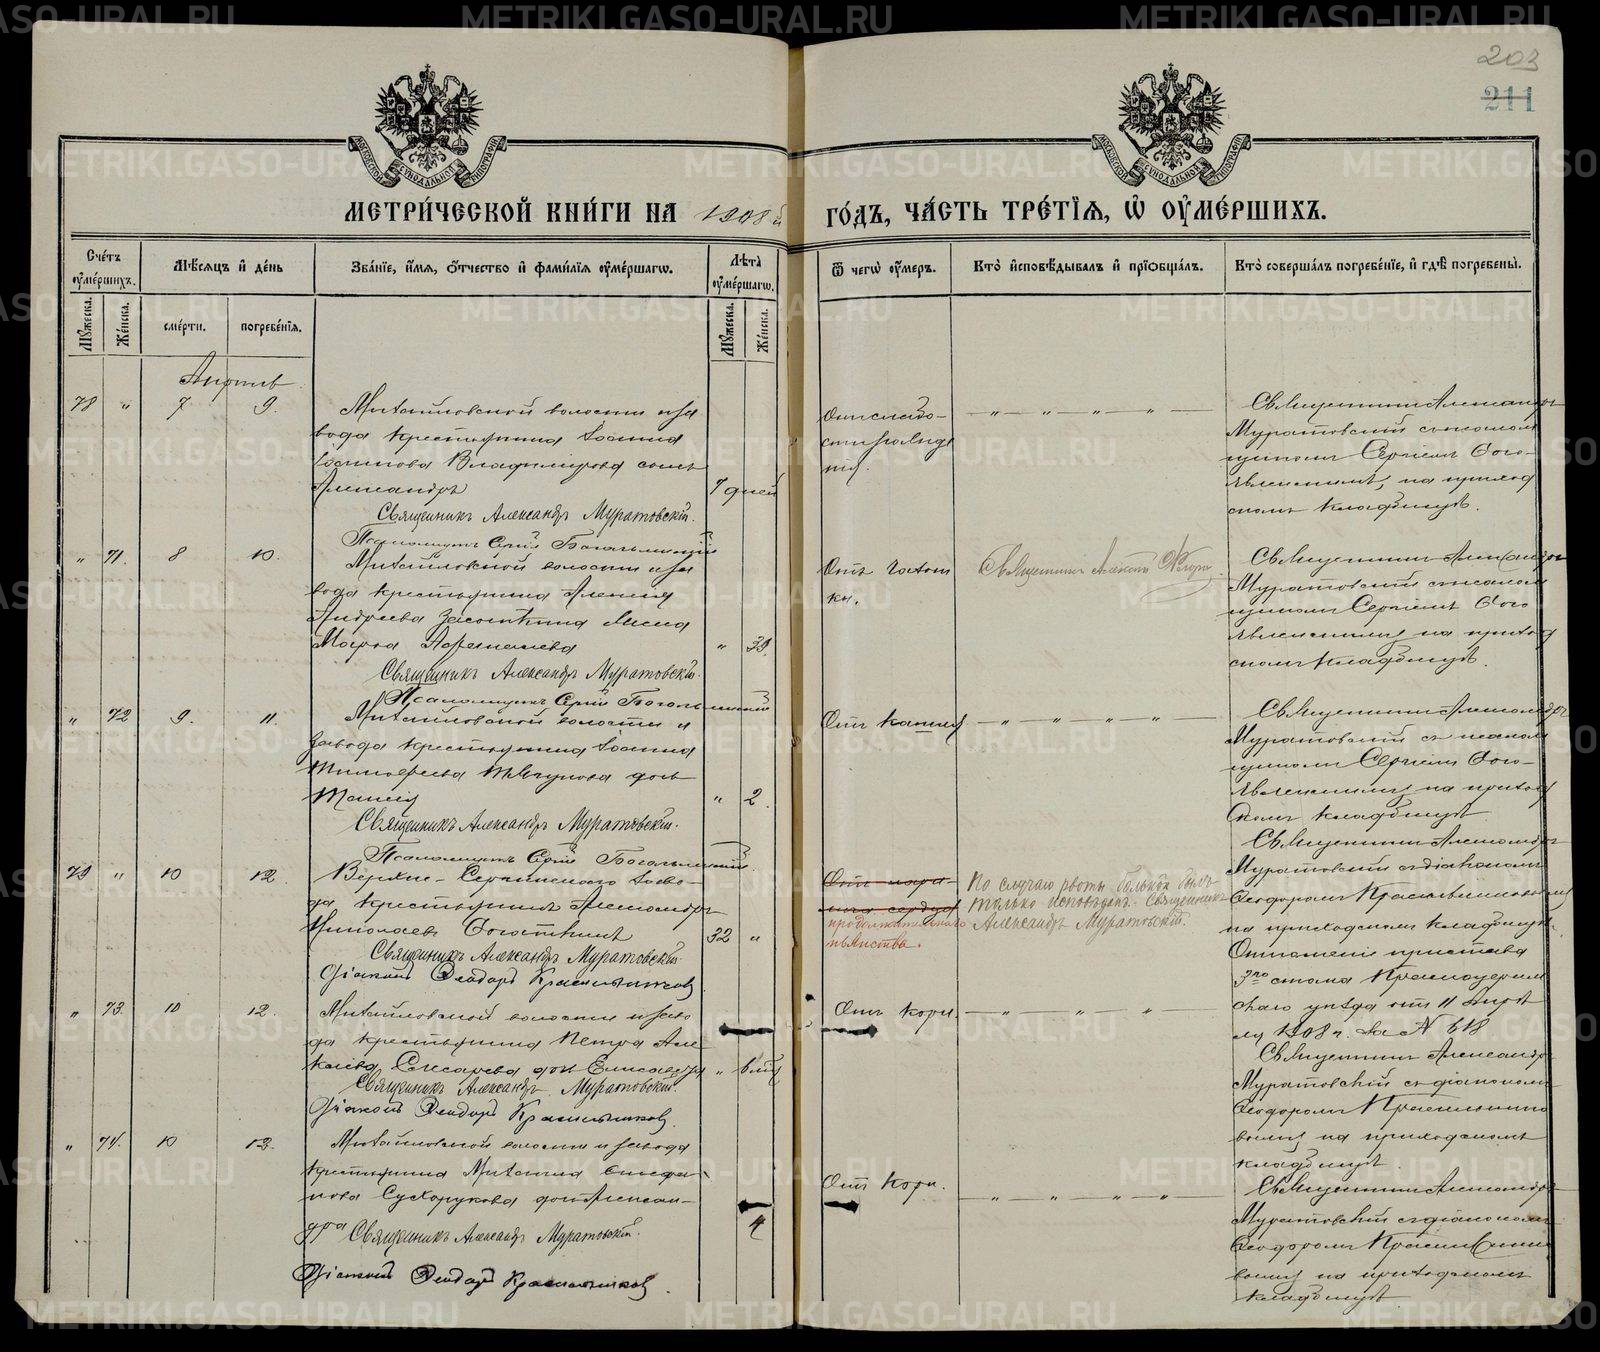 203
211
МОСКОВСКОЙ СѴНОДАЛЬНОЙ ТИПОГРАФІИ
МОСКОВСКОЙ СѴНОДАЛЬНОЙ ТИПОГРАФІИ
МЕТРИ́ЧЕСКОЙ КНИ́ГИ НА 1908й
ГО́ДЪ, ЧА́СТЬ ТРЕ́ТІЯ, Ѡ҆ ОУ҆МЕ́РШИХЪ.
Сче́тъ оу҆ме́ршихъ.
Мѣ́сяцъ и҆ де́нь
Зва́нїе, и҆́мя, о҆́тчество и҆ фами́лїя оу҆ме́ршагѡ.
Лѣ́та оу҆ме́ршагѡ.
Ѿ чегѡ̀ оу҆́меръ.
Кто̀ и҆сповѣ́дывалъ и҆ прїобща́лъ.
Кто̀ соверша́лъ погребе́нїе, и҆ гдѣ̀ погребены̀.
Му́жеска.
Же́нска.
сме́рти.
погребе́нїя.
Му́жеска.
Же́нска.
Апрѣль
78 " 7 9.
Михайловской волости и за
вода крестьянина Іоанна
Владимірова сынъ
Александръ
7 дней
Священникъ Александръ Муратовскій.
Псаломщикъ Сергій
Отъ слабо-
сти рожде
нія.
" " " " "
Священникъ Александръ
Муратовскій съ псалом
щикомъ Сергіемъ Бого-
явленскимъ, на приход
скомъ кладбищѣ.
" 71. 8 10.
Михайловской волости и за
вода крестьянина Алексія
Андреева жена
Марѳа
" 39.
Священникъ Александръ Муратовскій.
Псаломщикъ Сергій
Отъ чахот
ки.
Священникъ
Священникъ Александръ
Муратовскій съ псалом
щикомъ Сергіемъ Бого
явленскимъ на приход
скомъ кладбищѣ.
" 72 9. 11.
Михайловской волости и
завода крестьянина Іоанна
Тимофеева дочь
" 2.
Священникъ Александръ Муратовскій.
Псаломщикъ Сергій
Отъ кашля
" " " "
Священникъ Александръ
Муратовскій съ псалом
щикомъ Сергіемъ Бого-
явленскимъ на приход
скомъ кладбищѣ.
79 " 10 12.
Верхне-Сергинскаго заво-
да крестьянинъ Александръ
Николаевъ
32 "
Священникъ Александръ Муратовскій.
Діаконъ Ѳеодоръ Красильниковъ
Отъ
сердца
продолжительнаго
пьянства.
По случаю рвоты больной былъ
только исповѣданъ. Священникъ
Александръ Муратовскій.
Священникъ Александръ
Муратовскій съ діакономъ
Ѳеодоромъ Красильниковымъ
на приходскомъ кладбищѣ.
Отношеніе пристава
3го стана Красноуфим
скаго уѣзда отъ 11 Апрѣ
ля 1908 г. за № 618
" 73. 10 12.
Михайловской волости и заво
да крестьянина Петра Але
ксѣева дочь Елисавета
"
Священникъ Александръ Муратовскій
Діаконъ Ѳеодоръ Красильниковъ.
Отъ кори.
" " "
Священникъ Александръ
Муратовскій съ діакономъ
Ѳеодоромъ Красильнико
вымъ на приходскомъ
кладбищѣ.
" 74. 10 12.
Михайловской волости и завода
крестьянина Михаила Стефа
нова Сухорукова дочь Алексан-
дра
4
Священникъ Александръ Муратовскій.
Діаконъ Ѳеодоръ Красильниковъ.
Отъ кори.
" " " "
Священникъ Александръ
Муратовскій съ діакономъ
Ѳеодоромъ Красильнико
вымъ на приходскомъ
кладбищѣ
METRIKI.GASO-URAL.RU